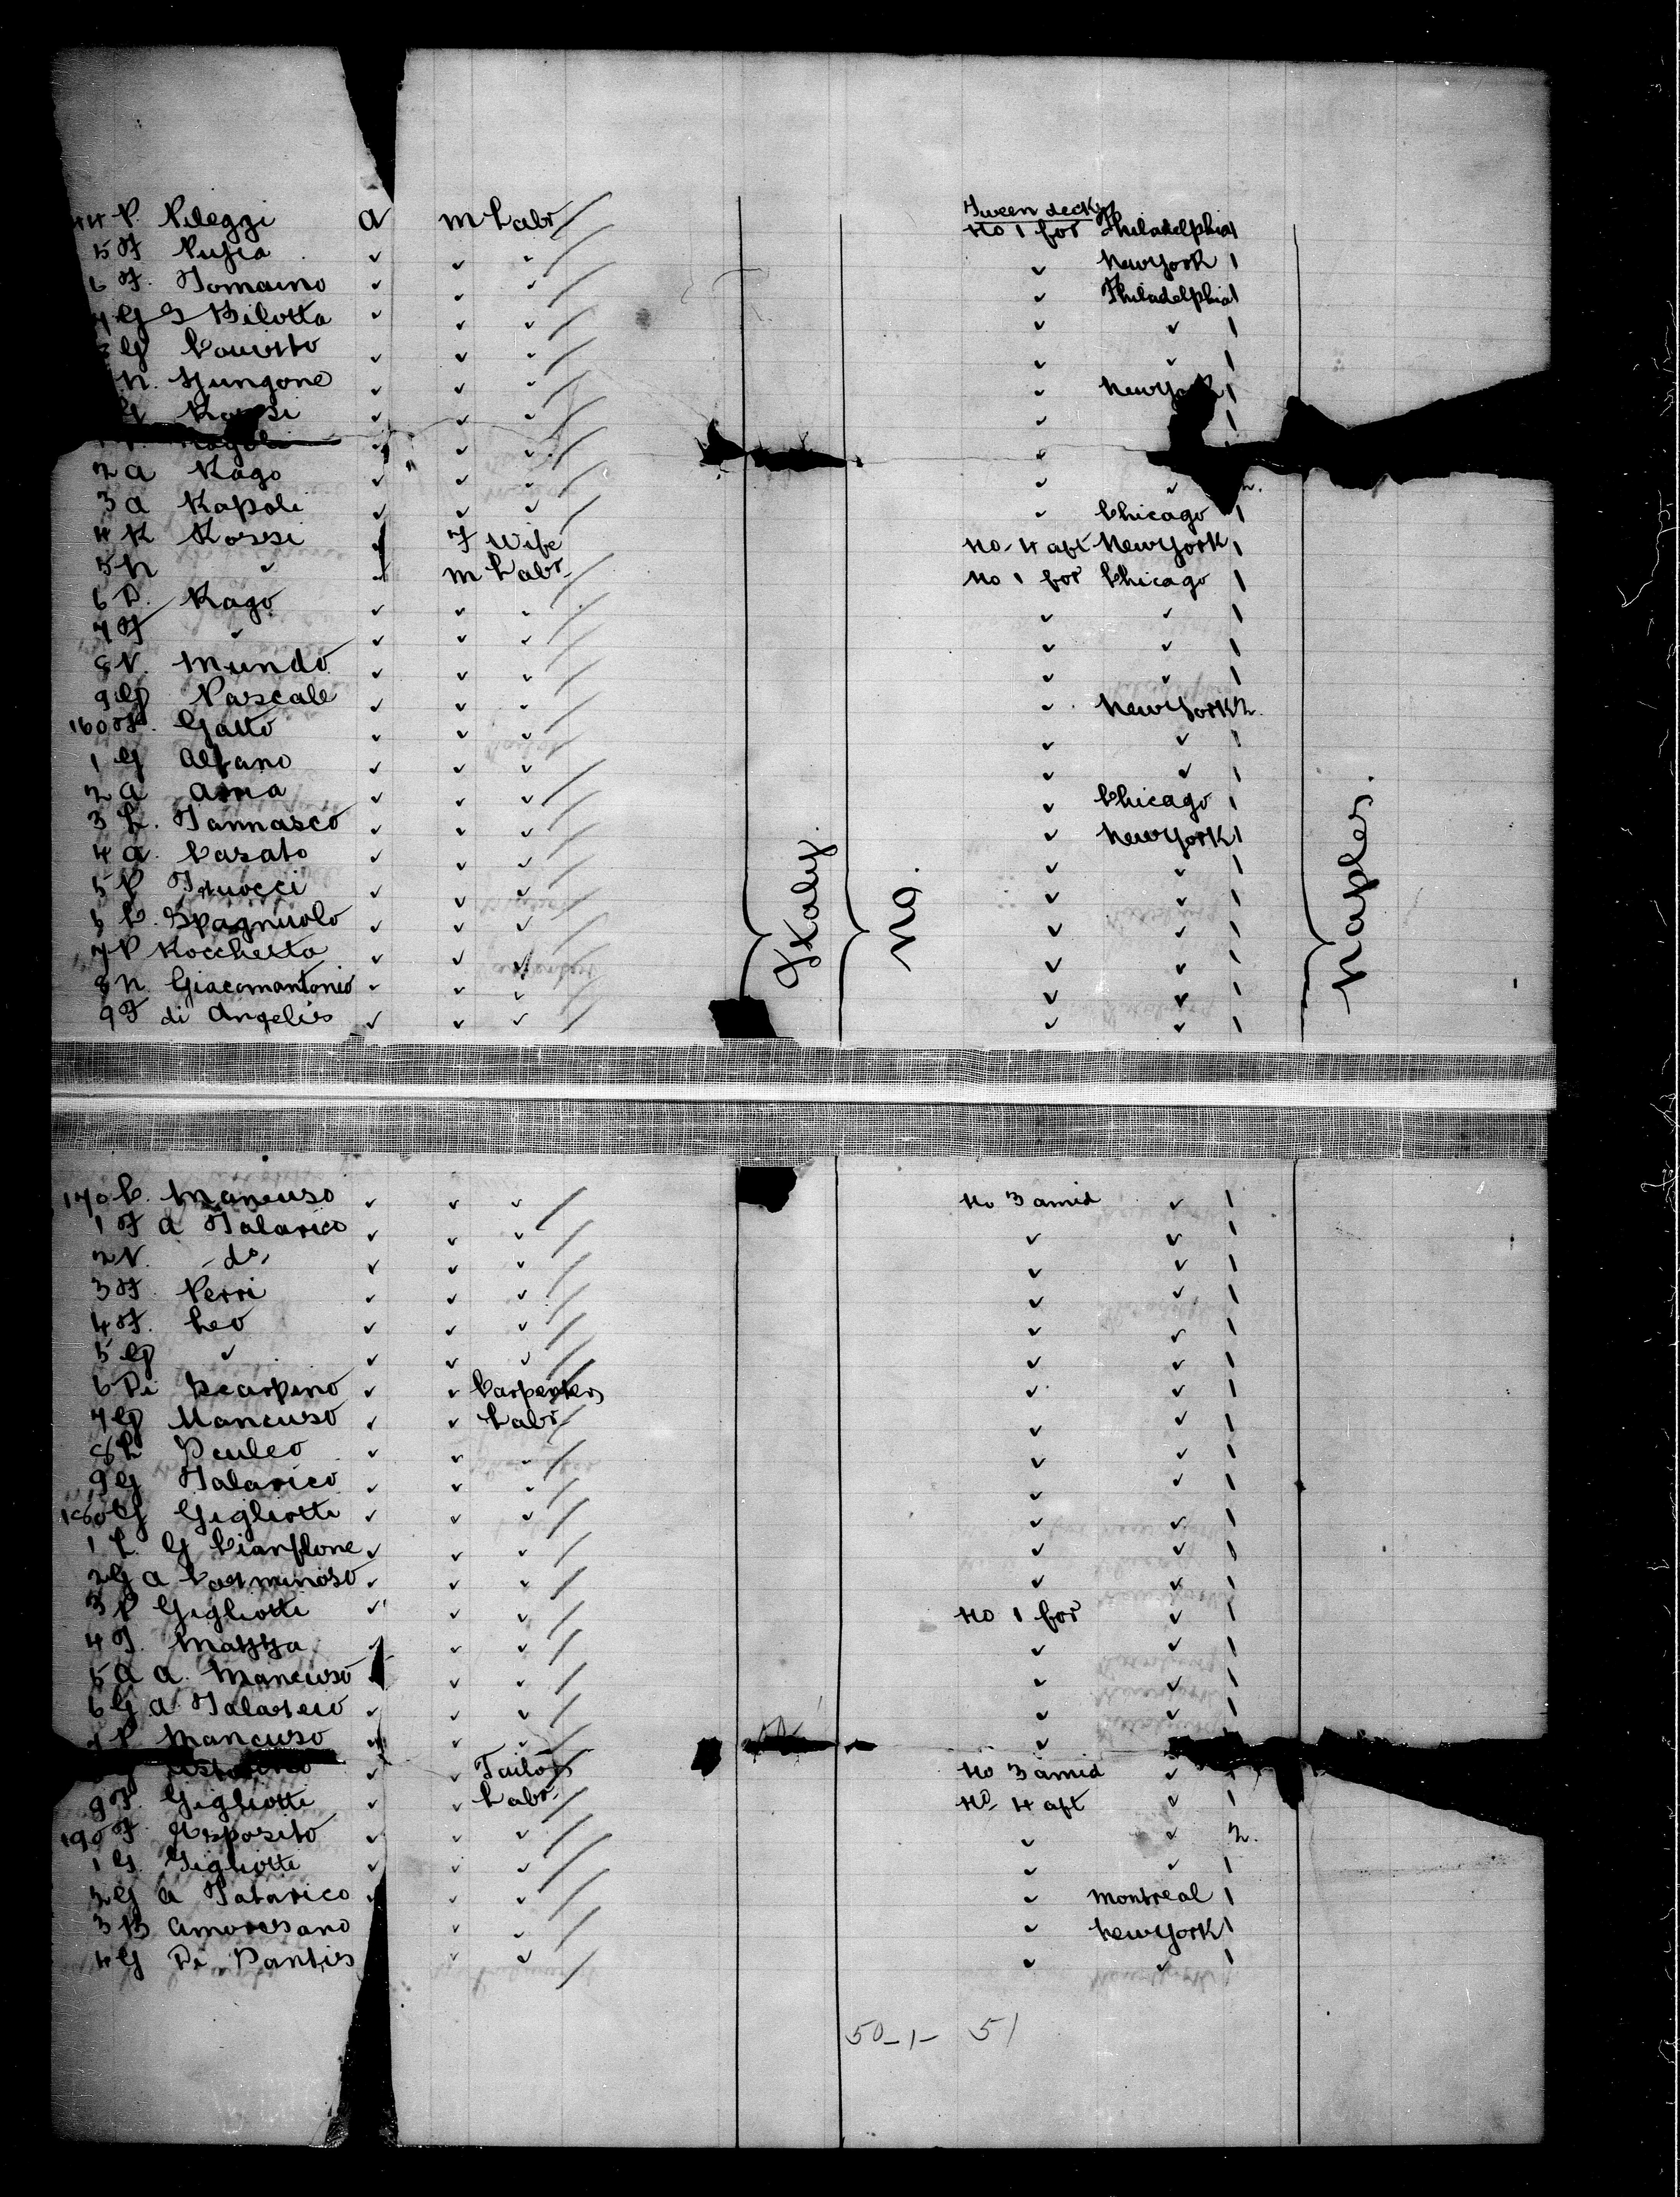 Tween decks
44 P. Pileggi a m Labr No 1 for Philadelphia 1
5 F Pujia ✓ ✓ ✓ ✓ New York 1
6 F. Tomaino ✓ ✓ ✓ ✓ Philadelphia 1
G S Bilotta ✓ ✓ ✓ ✓ ✓ 1
G ✓ ✓ ✓ ✓ ✓ 1
N. ✓ ✓ ✓ ✓ New York 1
G ✓ ✓ ✓ ✓ 1
✓ ✓ ✓ ✓
2 a Rago ✓ ✓ ✓ ✓ ✓ 2.
3 a Rapoli ✓ ✓ ✓ ✓ Chicago 1
4 R Rossi ✓ F Wife No. 4 aft New York 1
5 N ✓ m Labr. No 1 for Chicago 1
6 D. Rago ✓ ✓ ✓ ✓ ✓ 1
7 F ✓ ✓ ✓ ✓ ✓ ✓ 1
8 V. Mundo ✓ ✓ ✓ ✓ ✓ 1
9 G Pascale ✓ ✓ ✓ ✓ New York 2.
160 F. Gatto ✓ ✓ ✓ ✓ ✓ 1
1 G Alfano ✓ ✓ ✓ ✓ ✓ 1
2 a ✓ ✓ ✓ ✓ Chicago 1
3 L. Iannasco ✓ ✓ ✓ ✓ New York 1
4 a. Casato ✓ ✓ ✓ ✓ ✓ 1
5 P ✓ ✓ ✓ ✓ ✓ 1
6 C. Spagnuolo ✓ ✓ ✓ ✓ ✓ 1
7 P Rocchetta ✓ ✓ ✓ ✓ ✓ 1
8 N. Giacomantonio ✓ ✓ ✓ ✓ ✓ 1
9 F di Angelis ✓ ✓ ✓ ✓ ✓ 1
Italy.
no.
Naples.
170 C. Mancuso ✓ ✓ ✓ No 3 amid ✓ 1
1 F a Talarico ✓ ✓ ✓ ✓ ✓ 1
2 V. - do, ✓ ✓ ✓ ✓ ✓ 1
3 F. Perri ✓ ✓ ✓ ✓ ✓ 1
4 F. Leo ✓ ✓ ✓ ✓ ✓ 1
5 G ✓ ✓ ✓ ✓ ✓ ✓ 1
6 Di Scarpino ✓ ✓ Carpenter ✓ ✓ 1
7 G Mancuso ✓ ✓ Labr ✓ ✓ 1
8 L ✓ ✓ ✓ ✓ ✓ 1
9 G Talarico ✓ ✓ ✓ ✓ ✓ 1
180 G Gigliotti ✓ ✓ ✓ ✓ ✓ 1
1 L. G Cianflone ✓ ✓ ✓ ✓ ✓ 1
2 G a ✓ ✓ ✓ ✓ ✓ 1
3 P Gigliotti ✓ ✓ ✓ No 1 for ✓ 1
4 T. Mazza ✓ ✓ ✓ ✓ ✓ 1
5 a a. Mancuso ✓ ✓ ✓ ✓ 1
6 G a. ✓ ✓ ✓ ✓ ✓ 1
7 P Mancuso ✓ ✓ ✓ ✓
✓ ✓ Tailor No 3 amid ✓ 1
9 F. Gigliotti ✓ ✓ Labr. No. 4 aft ✓ 1
190 F Esposito ✓ ✓ ✓ ✓ ✓ 2.
1 G. Gigliotti ✓ ✓ ✓ ✓ ✓ 1
2 G a Talarico ✓ ✓ ✓ ✓ Montreal 1
3 B Amoresano ✓ ✓ ✓ New York 1
4 G Di Santis ✓ ✓ ✓ ✓
50-1- 51